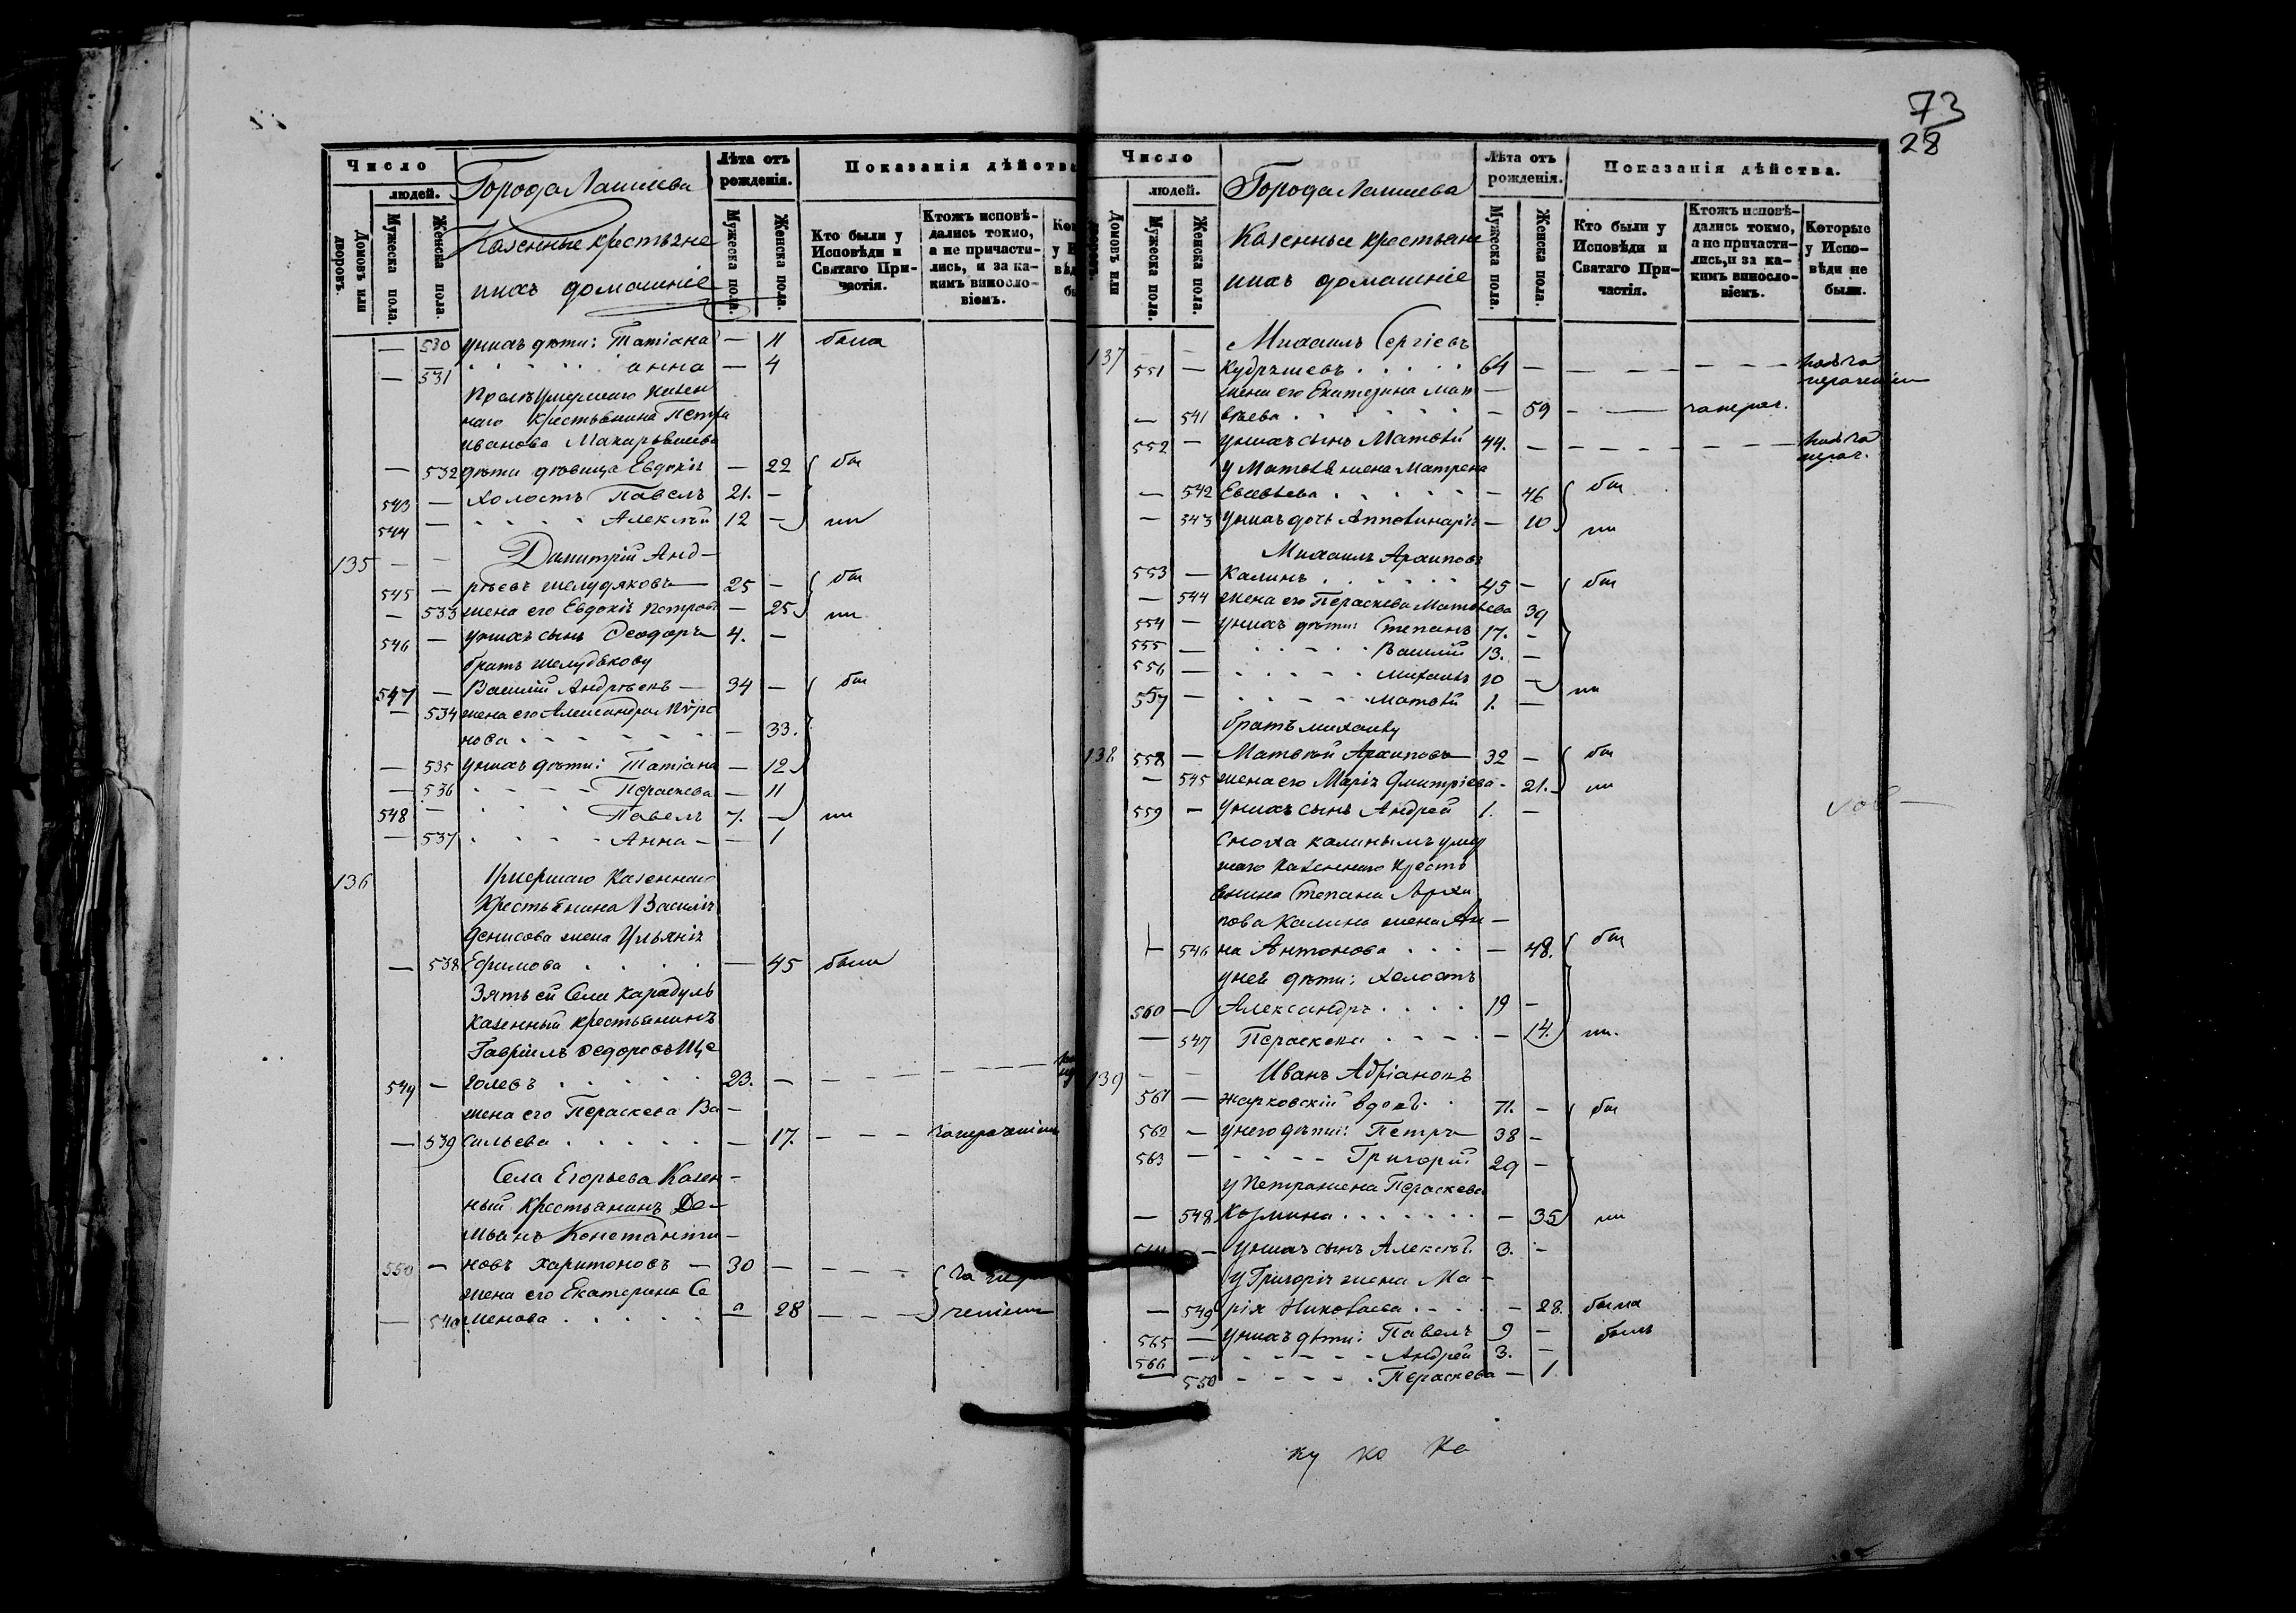 73
28
Число
людей.
Домовъ или дворовъ.
Мужеска пола.
Женска пола.
Города Лаишева
Казенные крестьяне
ихъ домашніе
Лѣта отъ рожденія.
Мужеска пола.
Женска пола.
Показанія дѣйства
Кто были у Исповѣди и Святаго Причастія.
Ктожъ исповѣдались токмо, а не причастились, и за какимъ винословіемъ.
— 530 у нихъ дѣти: Татіана — 11 была
— 531 анна — 4
Казен
наго крестьянина Петра
иванова
— 532 дѣти дѣвица Евдокія — 22 бы
543 — холостъ Павелъ 21. —
544 — Алексѣй 12 — ли
135 — — Димитрій Анд-
545 — рѣевъ шелудяковъ 25 — бы
— 533 жена его Евдокія Петрова — 25 ли
546 — у нихъ сынъ Ѳеодоръ 4. —
братъ шелудякову
547 — Василій Андрѣевъ — 34 — бы
— 534 жена его Александра
нова — 33.
— 535 у нихъ дѣти: Татіана — 12
— 536 Параскева — 11
548 — Павелъ 7. — ли
— 537 Анна — — 1
136 Умершаго Казеннаго
Крестьянина Василія
Денисова жена Ульянія
— 538 Ефимова — 45 была
Зять ей Села Карадуль
Казенный крестьянинъ
Гавріилъ Ѳедоровъ Ще
549 — голевъ 23. —
жена его Параскева Ва-
— 539 сильева — 17. — — —
Села Егорьева Казен-
ный Крестьянинъ Де-
мьянъ Константи-
550 — новъ Харитоновъ — 30 — — — —
жена его Екатерина Се
— 540 менова — 28 — — —
Число
людей.
Домовъ или дворовъ.
Мужеска пола.
Женска пола.
Города Лаишева
Казенные крестьяне
ихъ домашніе
Лѣта отъ рожденія.
Мужеска пола.
Женска пола.
Показанія дѣйства.
Кто были у Исповѣди и Святаго Причастія.
Ктожъ исповѣдались токмо, а не причастились, и за какимъ винословіемъ.
Которые у Исповѣди не были.
137 — — Михаилъ Сергіевъ
551 — Кудряшевъ 64 —
жена его Екатерина Мат —
— 541 вѣева — 59
552 — у нихъ сынъ Матвѣй 44. —
у Матвѣя жена Матрена
— 542 Евсевьева — 46 бы
— 543 у нихъ дочь Апполинарія — 10 ли
Михаилъ Архиповъ
553 — Калинъ 45 — бы
— 544 жена его Параскева Матвѣева 39
554 — у нихъ дѣти: Степанъ 17. —
555 — Василій 13. —
556 — Михаилъ 10 —
557 — Матвѣй 1. — ли
братъ михаилу
138 558 — Матвѣй Архиповъ 32 — бы
— 545 жена его Марія Дмитріева — 21. ли
559 — у нихъ сынъ Андрей 1. —
Сноха калинымъ умер
шаго Казеннаго Кресть
янина Степана Архи
пова Калина жена Ан —
546 на Антонова — 48. бы
у нея дѣти: холостъ
560 — Александръ 19 —
— 547 Параскева — 14. ли.
139 — — Иванъ Адріановъ
561 — жарковскій вдовъ 71. — бы
562 — у него дѣти: Петръ 38 —
563 — Григорій 29 —
у Петра жена Параскева
— 548 Козмина — 35 ли
— у нихъ сынъ Алексѣй. 3. —
у Григорія жена Ма —
— 549 рія Николаева — 28. была
565 — у нихъ дѣти: Павелъ 9 — былъ
566 — Андрей 3. —
550 Параскева — 1
ку ко ка